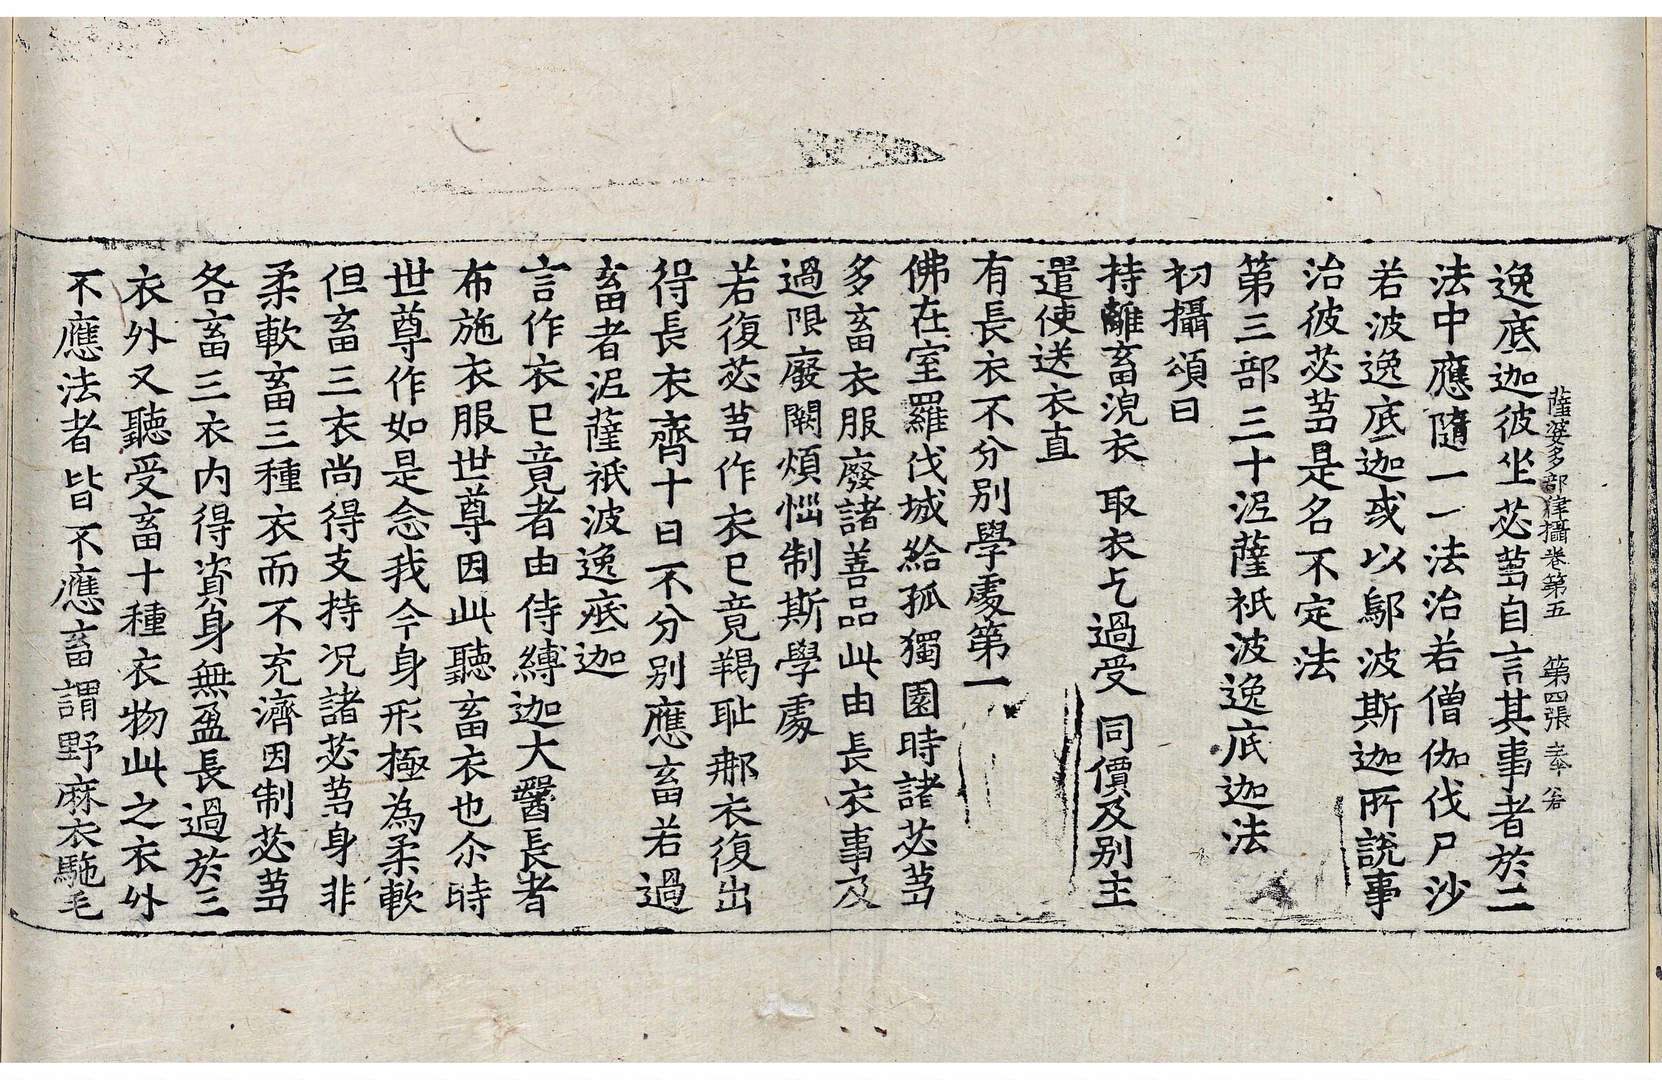 薩婆多部律攝卷第五 第四張 奉
逸底迦彼坐苾芻自言其事者於二
法中應隨一一法治若僧伽伐尸沙
若波逸底迦或以鄔波斯迦所說事
治彼苾芻是名不定法
第三部三十泥薩祇波逸底迦法
初攝頌曰
持離畜浣衣 取衣乞過受 同價及別主
遣使送衣直
有長衣不分別學處第一
佛在室羅伐城給孤獨園時諸苾芻
多畜衣服廢諸善品此由長衣事及
過限廢闕煩惱制斯學處
若復苾芻作衣已竟羯恥那衣復出
得長衣齊十日不分別應畜若過
畜者泥薩祇波逸底迦
言作衣已竟者由侍縛迦大醫長者
布施衣服世尊因此聽畜衣也尒時
世尊作如是念我今身形極為柔軟
但畜三衣尚得支持况諸苾芻身非
柔軟畜三種衣而不充濟因制苾芻
各畜三衣内得資身無盈長過於三
衣外又聽受畜十種衣物此之衣外
不應法者皆不應畜謂野麻衣駞毛